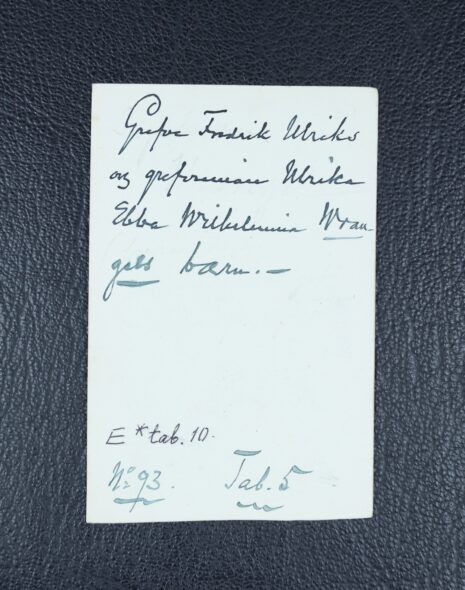 Grefve Fredrik Ulriks
og grefvinnan Ulrika
Ebba Wilhelmina Wran
gels barn. —
E * tab. 10.
No 93. Tab. 5